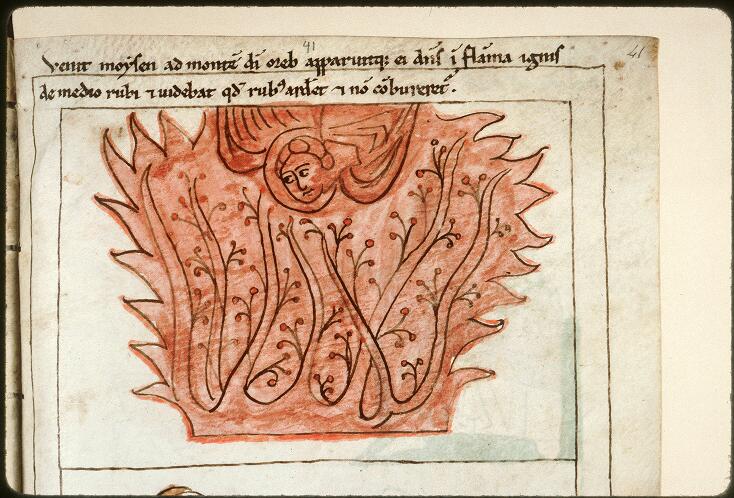 41 41
venit moysen ad montē di oreb apparuitq; ei dns ī flāma ignis
de medio rubi ⁊ uidebat qd rubꝰ ardet ⁊ nō cōbureret.